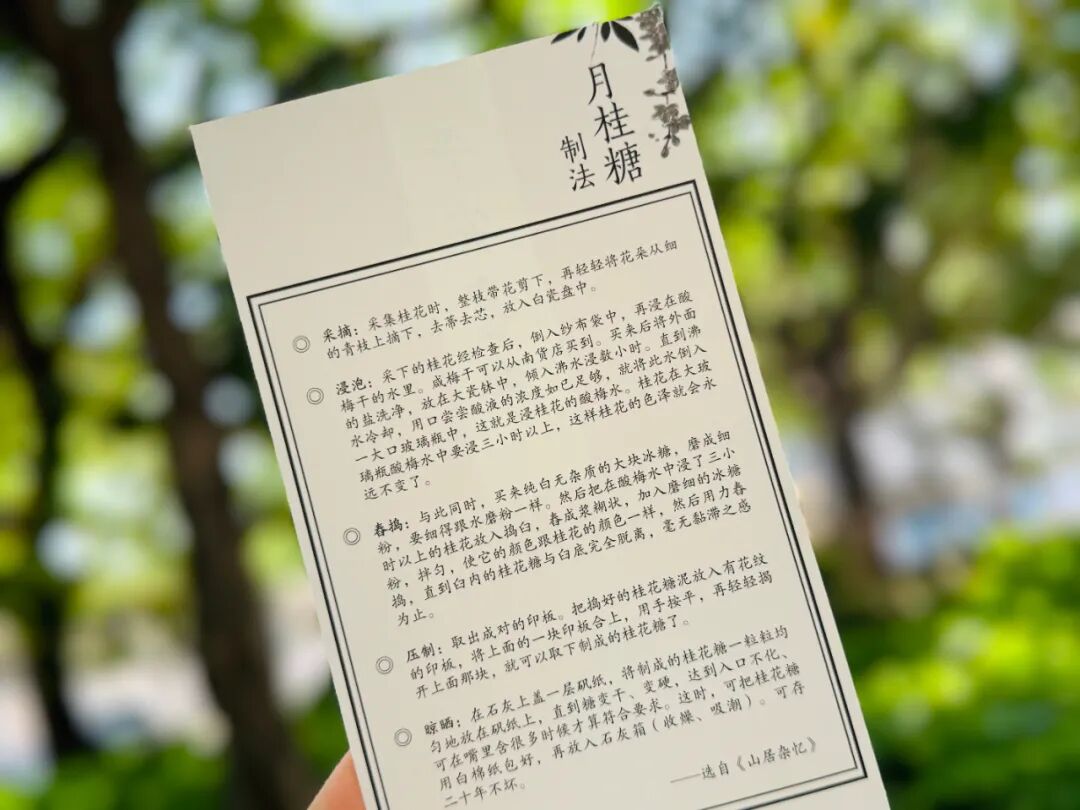 月桂糖
制法
采摘：采集桂花时，整枝带花剪下，再轻轻将花朵从细
的青枝上摘下，去蒂去芯，放入白瓷盘中。
浸泡：采下的桂花经检查后，倒入纱布袋中，再浸在酸
梅干的水里。咸梅干可以从南货店买到。买来后将外面
的盐洗净，放在大瓷钵中，倾入沸水浸数小时。直到沸
水冷却，用口尝尝酸液的浓度如已足够，就将此水倒入
一大口玻璃瓶中，这就是浸桂花的酸梅水。桂花在大玻
璃瓶酸梅水中要浸三小时以上，这样桂花的色泽就会永
远不变了。
舂捣：与此同时，买来纯白无杂质的大块冰糖，磨成细
粉，要细得跟水磨粉一样。然后把在酸梅水中浸了三小
时以上的桂花放入捣臼，舂成浆糊状，加入磨细的冰糖
粉，拌匀，使它的颜色跟桂花的颜色一样，然后用力舂
捣，直到臼内的桂花糖与臼底完全脱离，毫无黏滞之感
为止。
压制：取出成对的印板。把捣好的桂花糖泥放入有花纹
的印板，将上面的一块印板合上，用手按平，再轻轻揭
开上面那块，就可以取下制成的桂花糖了。
晾晒：在石灰上盖一层矾纸，将制成的桂花糖一粒粒均
匀地放在矾纸上，直到糖变干、变硬，达到入口不化、
可在嘴里含很多时候才算符合要求。这时，可把桂花糖
用白棉纸包好，再放入石灰箱（收燥、吸潮）。可存
二十年不坏。
——选自《山居杂忆》